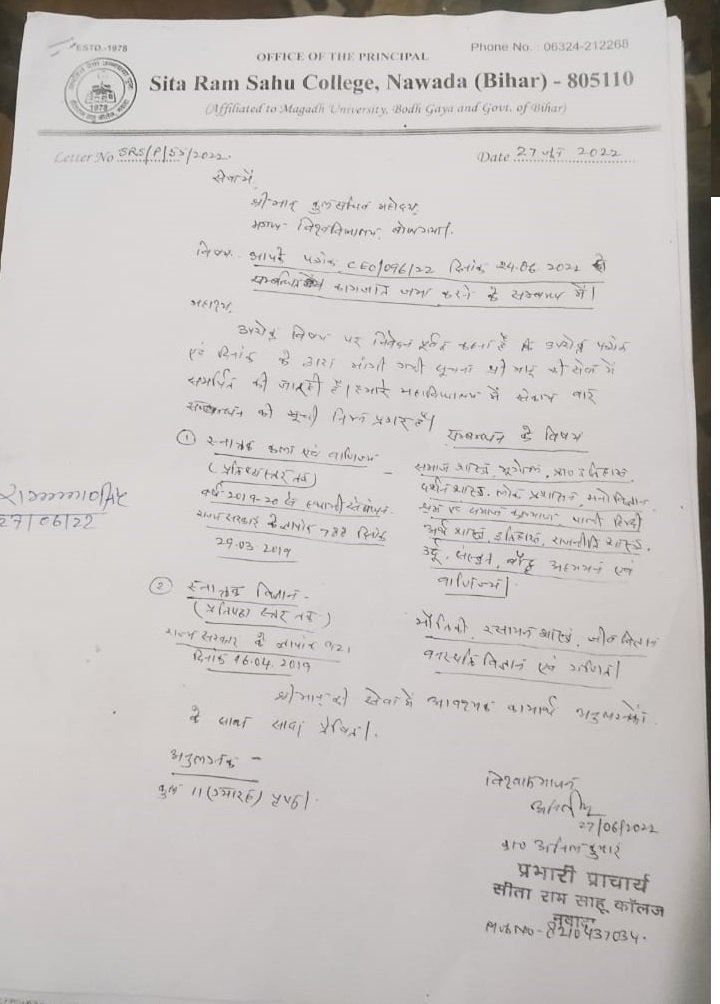 ESTD.-1978
Phone No. : 06324-212268
OFFICE OF THE PRINCIPAL
Sita Ram Sahu College, Nawada (Bihar) - 805110
(Affiliated to Magadh University, Bodh Gaya and Govt. of Bihar)
1978
Letter No SRS/P/55/2022.
Date 27 जून 2022
सेवा में,
श्रीमान् कुलसचिव महोदय,
मगध विश्वविद्यालय, बोधगया।
विषय:- आपके पत्रांक CEO/096/22 दिनांक 24.06.2022 से
सम्बन्धित कागजात जमा करने के सम्बन्ध में।
महाशय,
उपरोक्त विषय पर निवेदन पूर्वक कहना है कि उपरोक्त पत्रांक
एवं दिनांक के द्वारा मांगी गयी सूचना श्रीमान् की सेवा में
समर्पित की जा रही है। हमारे महाविद्यालय में संकाय वार
सम्बन्धन की सूची निम्न प्रकार है।
सम्बन्धन के विषय
① स्नातक कला एवं वाणिज्य
(प्रतिष्ठा स्तर तक) -
वर्ष 2019-20 से
राज्य सरकार के ज्ञापांक 788 दिनांक
29.03.2019
समाज शास्त्र, भूगोल, प्रा० इतिहास,
दर्शन शास्त्र, लोक प्रशासन, मनोविज्ञान,
श्रम एवं समाज कल्याण, पाली, हिन्दी
अर्थ शास्त्र, इतिहास, राजनीति शास्त्र,
उर्दू, संस्कृत, बौद्ध अध्ययन एवं
वाणिज्य।
27/06/22
② स्नातक विज्ञान -
(प्रतिष्ठा स्तर तक)
राज्य सरकार के ज्ञापांक 921
दिनांक 16.04.2019
भौतिकी, रसायन शास्त्र, जीव विज्ञान
वनस्पति विज्ञान एवं गणित।
श्रीमान् की सेवा में आवश्यक कार्यार्थ अनुलग्नकों
के साथ सादर प्रेषित।
अनुलग्नक -
कुल 11 (ग्यारह) पृष्ठ।
विश्वासभाजन
27/06/2022
डा० अनिल कुमार
प्रभारी प्राचार्य
सीता राम साहू कॉलेज
नवादा
Mob No - 8210437034.